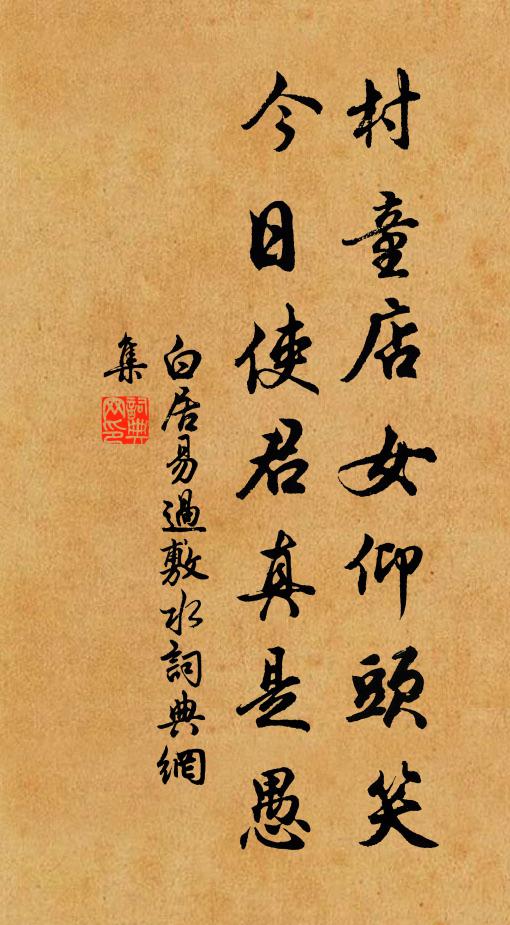 村童店女仰頭笑
今日使君真是愚
白居易過敷水詞典網
集
詞典網印